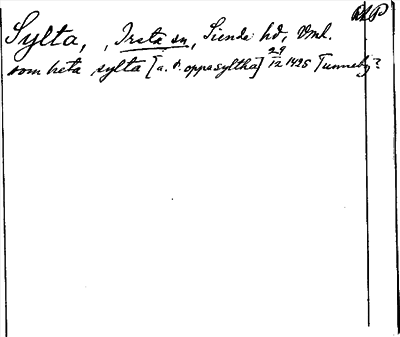 RAP
Sylta, , Irsta sn, Siende hd, Vml.
som heta sylta [a. d. oppasyltha] 29/12 1425 Tunneby?